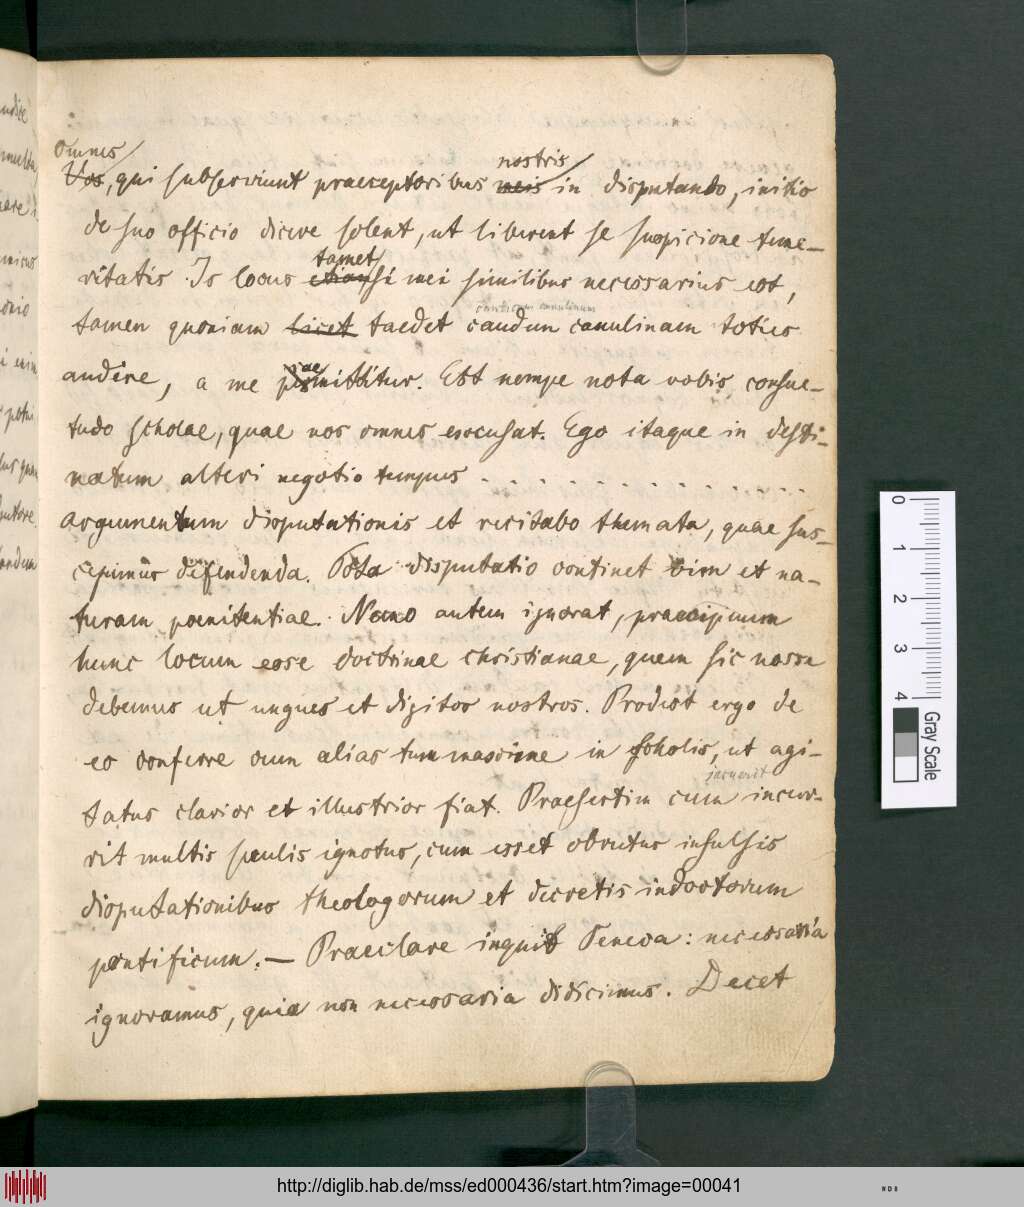 omnes
Vos, qui subserviunt praeceptoribus meis nostris in disputando, initio
de suo officio dicere solent, ut liberent se suspicione teme-
ritatis. Is locus etiamsi tamet mei similibus necessarius est,
tamen quoniam licet taedet eandem canulinam toties
audire, a me praemittitur. Est nempe nota vobis consue-
tudo scholae, quae nos omnes excusat. Ego itaque in desti-
natum alteri negotio tempus . . . . . . . . . . . .
argumentum disputationis et recitabo themata, quae sus-
cepimus defendenda. Tota disputatio continet vim et na-
turam poenitentiae. Nemo autem ignorat, praecipuum
hunc locum esse doctrinae christianae, quem sic nosse
debemus ut ungues et digitos nostros. Prodest ergo de
eo conferre cum alias tum maxime in scholis, ut agi-
tatus clarior et illustrior fiat. Praesertim cum incur-
jacuerit
rit multis seculis ignotus, cum esset obrutus insulsis
disputationibus theologorum et decretis indoctorum
pontificum. — Praeclare inquit Seneca: necessaria
ignoramus, quia non necessaria didicimus. Decet
0
1
2
3
4
Gray Scale
http://diglib.hab.de/mss/ed000436/start.htm?image=00041